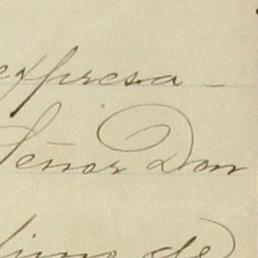 expresa
Señor Don
de